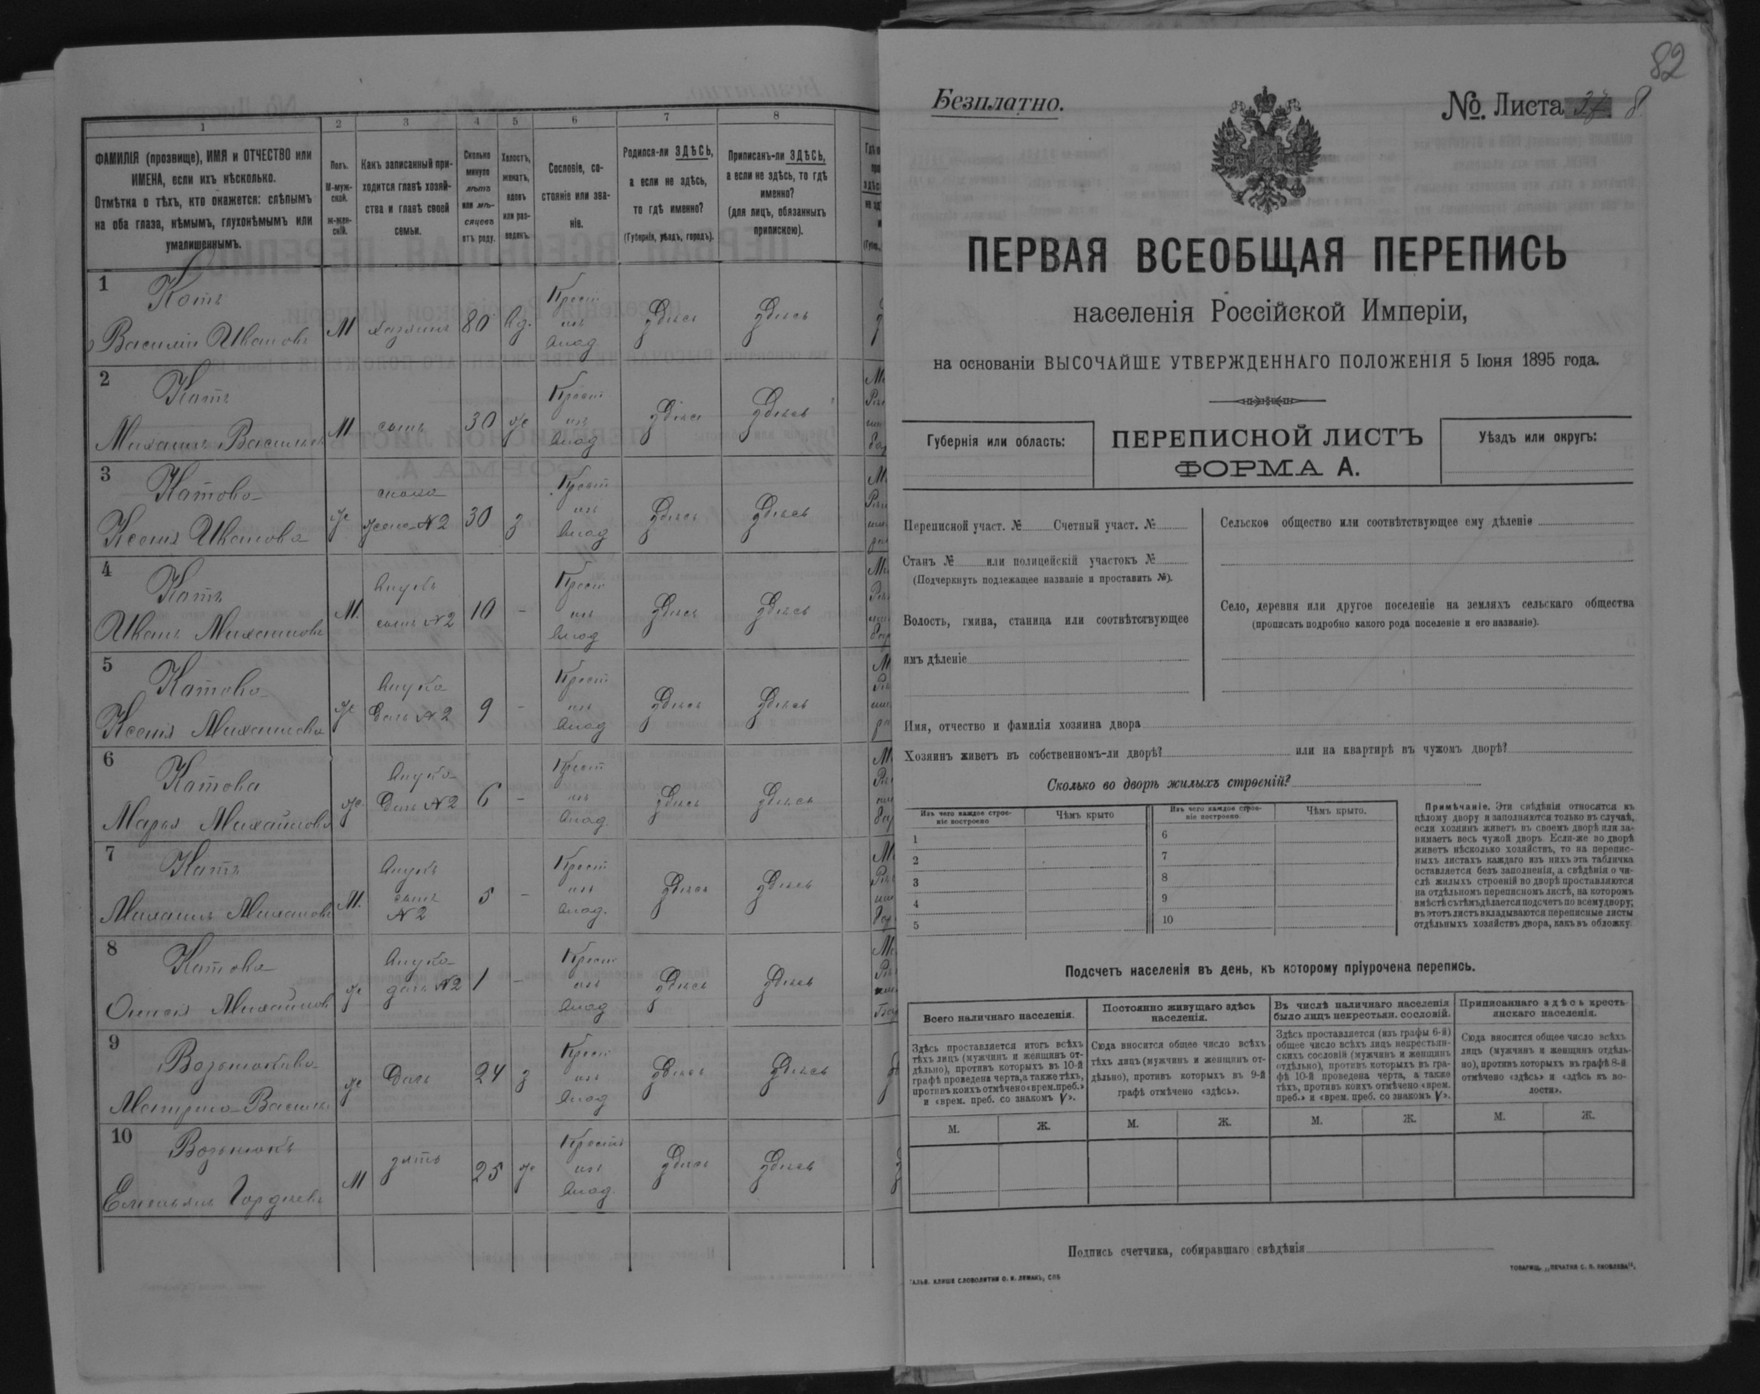 1
2
3
4
5
6
7
8
ФАМИЛІЯ (прозвище), ИМЯ и ОТЧЕСТВО или
ИМЕНА, если ихъ нѣсколько.
Отмѣтка о тѣхъ, кто окажется: слѣпымъ
на оба глаза, нѣмымъ, глухонѣмымъ или
умалишеннымъ.
Полъ.
М-муж-
ской.
Ж-жен-
скій.
Какъ записанный при-
ходится главѣ хозяй-
ства и главѣ своей
семьи.
Сколько
минуло
лѣтъ
или мѣ-
сяцевъ
отъ роду.
Холостъ,
женатъ,
вдовъ
или раз-
веденъ.
Сословіе, со-
стояніе или зва-
ніе.
Родился-ли ЗДѢСЬ,
а если не здѣсь,
то гдѣ именно?
(Губернія, уѣздъ, городъ).
Приписанъ-ли ЗДѢСЬ,
а если не здѣсь, то гдѣ
именно?
(для лицъ, обязанныхъ
припискою).
1
Катъ
Василій Ивановъ
М хозяинъ 80 вд.
Крест
изъ
влад.
здѣсь здѣсь
2
Катъ
Михаилъ Васильев
М сынъ 30 ж
Крест
изъ
влад
здѣсь здѣсь
3
Катова
Ксенія Иванова
ж
сноха
жена №2
30 з
Крест
изъ
влад
здѣсь здѣсь
4
Катъ
Иванъ Михайловъ
М.
внукъ
сынъ №2
10 -
Крест
изъ
влад
здѣсь здѣсь
5
Катова
Ксенія Михайлова
ж
внука
дочь №2
9 -
Крест
изъ
влад.
здѣсь здѣсь
6
Катова
Марья Михайлова
ж.
внука
дочь №2
6 -
Крест
изъ
влад.
здѣсь здѣсь
7
Катъ
Михаилъ Михайлов
М.
внукъ
сынъ
№2
5 -
Крест
изъ
влад.
здѣсь здѣсь
8
Катова
Михайлов
ж
внука
дочь №2
1 -
Крест
изъ
влад
здѣсь здѣсь
9
Матрена Василь
ж дочь 24 з
Крест
изъ
влад
здѣсь здѣсь
10
Емельянъ Гордѣевъ
М зять 25 ж
Крест
изъ
влад.
здѣсь здѣсь
82
Безплатно.
№. Листа 8
ПЕРВАЯ ВСЕОБЩАЯ ПЕРЕПИСЬ
населенія Россійской Имперіи,
на основаніи ВЫСОЧАЙШЕ УТВЕРЖДЕННАГО ПОЛОЖЕНІЯ 5 Іюня 1895 года.
Губернія или область:
ПЕРЕПИСНОЙ ЛИСТЪ
ФОРМА А.
Уѣздъ или округъ:
Переписной участ. № Счетный участ. №
Станъ № или полицейскій участокъ №
(Подчеркнуть подлежащее названіе и проставить №).
Волость, гмина, станица или соотвѣтствующее
имъ дѣленіе
Сельское общество или соотвѣтствующее ему дѣленіе
Село, деревня или другое поселеніе на земляхъ сельскаго общества
(прописать подробно какого рода поселеніе и его названіе).
Имя, отчество и фамилія хозяина двора
Хозяинъ живетъ въ собственномъ-ли дворѣ? или на квартирѣ въ чужомъ дворѣ?
Сколько во дворѣ жилыхъ строеній?
Изъ чего каждое строе-
ніе построено
Чѣмъ крыто
Изъ чего каждое строе-
ніе построено
Чѣмъ крыто.
1
2
3
4
5
6
7
8
9
10
Примѣчаніе. Эти свѣдѣнія относятся къ
цѣлому двору и заполняются только въ случаѣ,
если хозяинъ живетъ въ своемъ дворѣ или за-
нимаетъ весь чужой дворъ. Если-же во дворѣ
живетъ нѣсколько хозяйствъ, то на перепис-
ныхъ листахъ каждаго изъ нихъ эта табличка
оставляется безъ заполненія, а свѣдѣнія о чи-
слѣ жилыхъ строеній во дворѣ проставляются
на отдѣльномъ переписномъ листѣ, на которомъ
вмѣстѣ съ тѣмъ дѣлается подсчетъ по всему двору;
въ этотъ листъ вкладываются переписные листы
отдѣльныхъ хозяйствъ двора, какъ въ обложку.
Подсчетъ населенія въ день, къ которому пріурочена перепись.
Всего наличнаго населенія.
Здѣсь проставляется итогъ всѣхъ
тѣхъ лицъ (мужчинъ и женщинъ от-
дѣльно), противъ которыхъ въ 10-й
графѣ проведена черта, а также тѣхъ,
противъ коихъ отмѣчено «врем. преб.»
и «врем. преб. со знакомъ V».
Постоянно живущаго здѣсь
населенія.
Сюда вносится общее число всѣхъ
тѣхъ лицъ (мужчинъ и женщинъ от-
дѣльно), противъ которыхъ въ 9-й
графѣ отмѣчено «здѣсь».
Въ числѣ наличнаго населенія
было лицъ некрестьян. сословій.
Здѣсь проставляется (изъ графы 6-й)
общее число всѣхъ лицъ некрестьян-
скихъ сословій (мужчинъ и женщинъ
отдѣльно), противъ которыхъ въ гра-
фѣ 10-й проведена черта, а также
тѣхъ, противъ коихъ отмѣчено «врем.
преб.» и «врем. преб. со знакомъ V».
Приписаннаго здѣсь кресть-
янскаго населенія.
Сюда вносится общее число всѣхъ
лицъ (мужчинъ и женщинъ отдѣль-
но), противъ которыхъ въ графѣ 8-й
отмѣчено «здѣсь» и «здѣсь въ во-
лости».
М. Ж. М. Ж. М. Ж. М. Ж.
Подпись счетчика, собиравшаго свѣдѣнія
ГАЛЬВ. КЛИШЕ СЛОВОЛИТНИ О. И. ЛЕМАНЪ, СПБ
ТОВАРИЩ. „ПЕЧАТНЯ С. П. ЯКОВЛЕВА“.